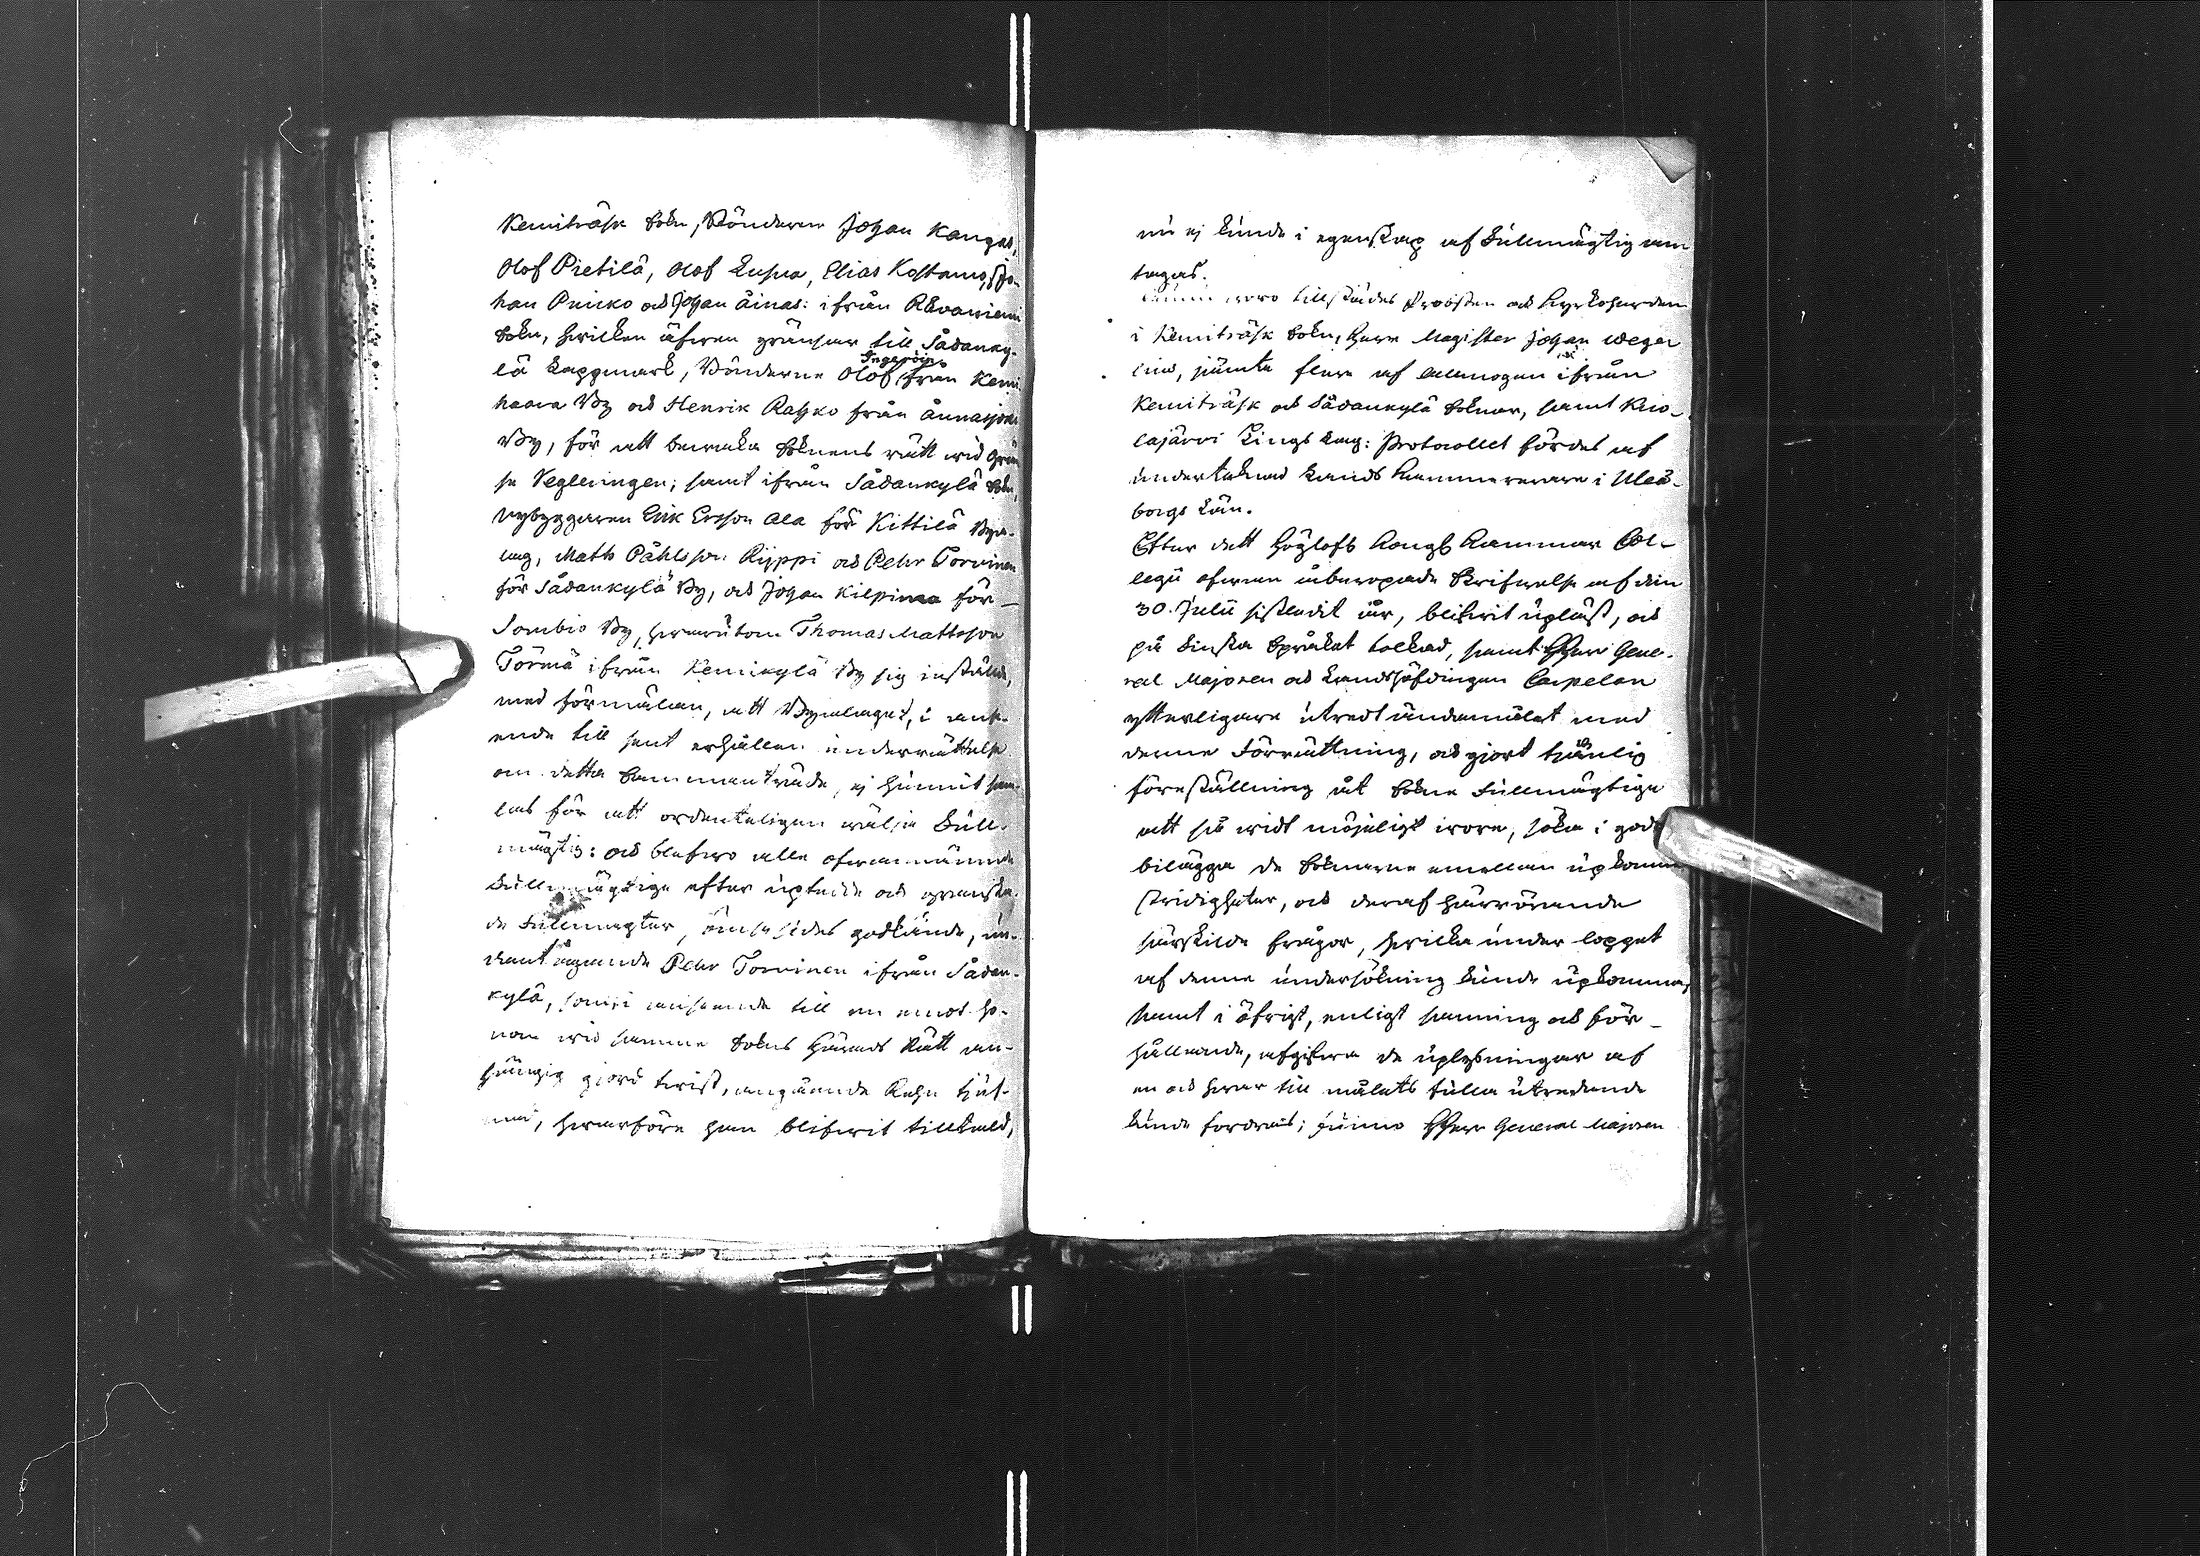 Kemiträsk Sokn, Bönderne Johan Kangas,
Olof Pietilä, Olof Luspa, Elias Kostamo, Jo-
han Pricko och Johan Äinas: ifrån Råvaniemi
Sokn, hwilken äfwen gränsar till Sådanky-
lä Lappmark, Bönderne Olof Ingeröin från Kemi
haara By och Henrik Rahko från Ånnasjoki
By, för att bewaka Soknens rätt wid Grän
se Regleringen; samt ifrån Sådankylä Sokn
Nybyggaren Erik Ersson Ala för Kittilä Bya-
lag, Mats Påhlsson Ryppi och Pehr Torvinen
för Sådankylä By, och Johan Kilpimaa för
Sombio By, hwarutom Thomas Mattsson
Törmä ifrån Kemikylä By sig instälde,
med förmälan, att Byalaget, i anse-
ende till sent erhållen underrättelse
om detta Sammanträde, ej hunnit sam-
las för att ordenteligen wälja Full-
mägtig: och blefwo alle ofwannämnde
Fullmägtige efter upteedde och granska-
de Fullmagter, ömsesides godkände, un-
dantagande Pehr Torvinen ifrån Sådan-
kylä, som i anseende till en emot ho-
nom wid samme Sokns Härads Rätt an-
hängig giord twist, angående Rehn tjuf-
nad, hwarföre han blifwit tilltald,
nu ej kunde i egenskap af Fullmägtig an
tagas.
woro tillstädes Probsten och Kyrkoherden
i Kemiträsk Sokn, Herr Magister Johan Wege
lius, jämte flere af Allmogen ifrån
Kemiträsk och Sådankylä Soknar, samt Kuo-
lajärvi Tings Lag: Protocollet fördes af
undertecknad Lands Kammererare i Uleå-
borgs Län.
Efter det Höglofl. Kongl. Kammar Col-
legii ofwan åberopade Skrifwelse af den
30. Julii sistledit år, blifwit upläst, och
på Finska Språket tolkad, samt HHerr Gene-
ral Majoren och Landshöfdingen Carpelan
ytterligare utredt ändamålet med
denne Förrättning, och gjort tjenlig
föreställning åt Sokne Fullmägtige
att så widt möjeligt wore, söka i godo
bilägga de Soknarne emellan upkomne
stridigheter, och deraf härrörande
särskilde frågor, hwilka under loppet
af denne undersökning kunde upkomma,
samt i öfrigt, enligt sanning och för-
hållande, afgifwa de uplysningar af
en och hwar till målets fulla utredande
kunde fordras; funno HHerr General Majoren